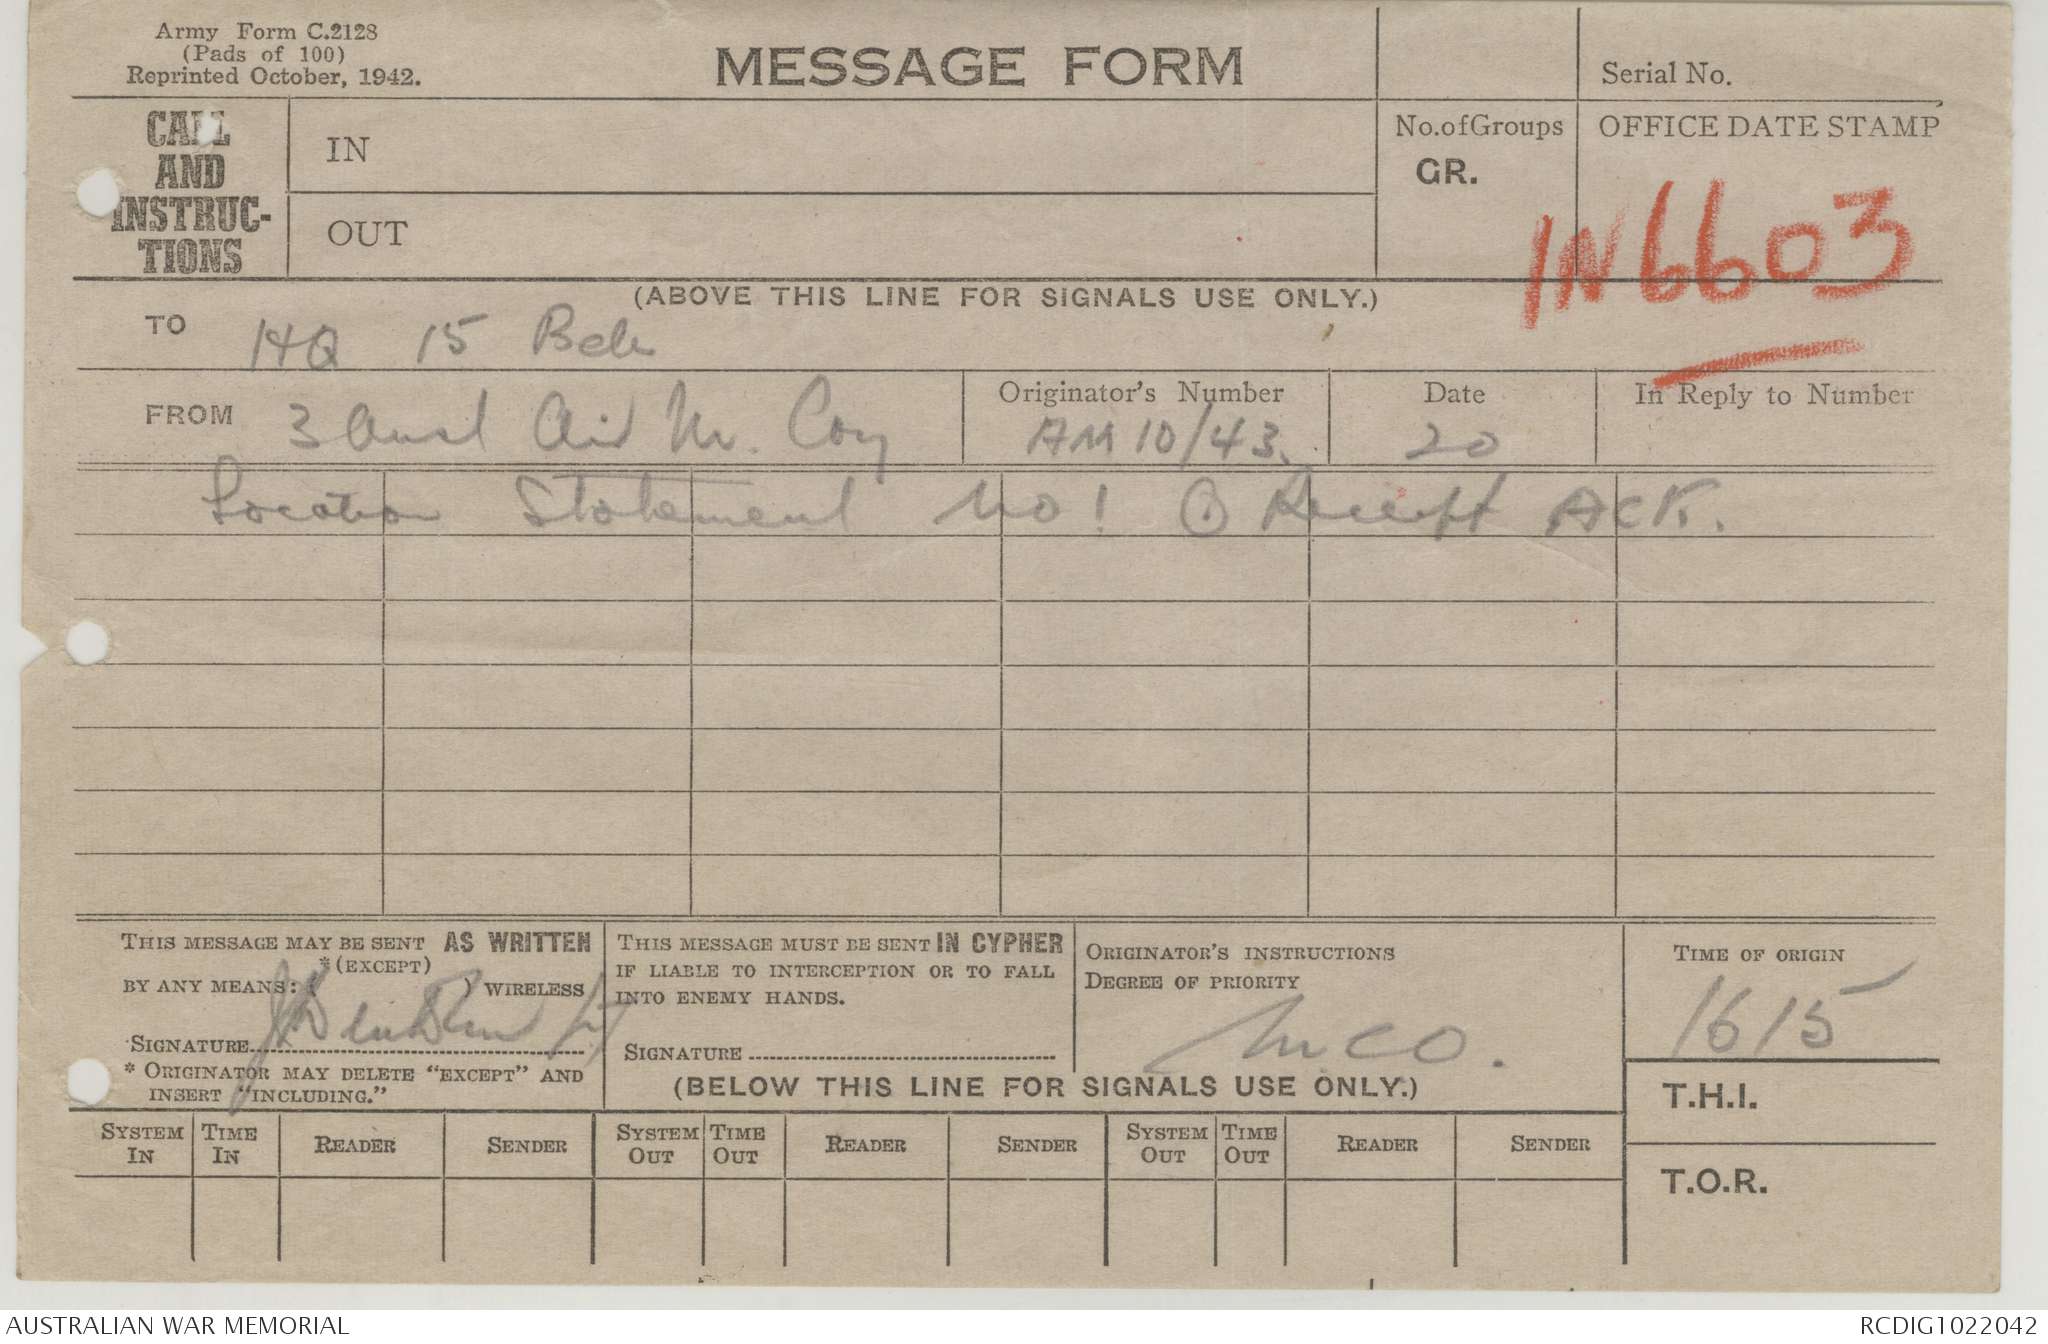 Army Form C.2128
(Pads of 100)
Reprinted October, 1942.
MESSAGE FORM
Serial No.
CALL
AND
INSTRUC-
TIONS
IN
OUT
No.ofGroups
GR.
OFFICE DATE STAMP
IN6603
(ABOVE THIS LINE FOR SIGNALS USE ONLY.)
TO HQ 15 Bde
FROM 3 Aust Air M. Coy
Originator's Number
AM 10/43.
Date
20
In Reply to Number
Location Statement No 1 ⊙ Receipt ACK.
THIS MESSAGE MAY BE SENT AS WRITTEN
*(EXCEPT)
BY ANY MEANS: ( ) WIRELESS
SIGNATURE
* ORIGINATOR MAY DELETE "EXCEPT" AND
INSERT "INCLUDING."
THIS MESSAGE MUST BE SENT IN CYPHER
IF LIABLE TO INTERCEPTION OR TO FALL
INTO ENEMY HANDS.
SIGNATURE
ORIGINATOR'S INSTRUCTIONS
DEGREE OF PRIORITY
TIME OF ORIGIN
1615
(BELOW THIS LINE FOR SIGNALS USE ONLY.)
T.H.I.
T.O.R.
SYSTEM IN TIME IN READER SENDER SYSTEM OUT TIME OUT READER SENDER SYSTEM OUT TIME OUT READER SENDER
AUSTRALIAN WAR MEMORIAL
RCDIG1022042